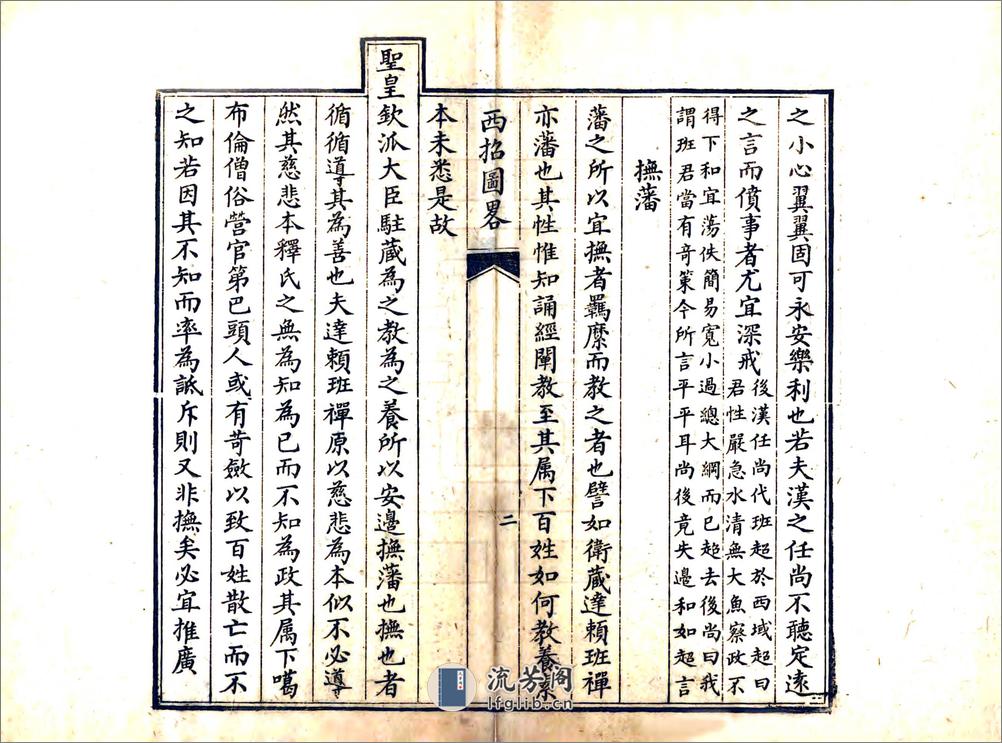 之小心翼翼固可永安樂利也若夫漢之任尚不聽定遠
之言而僨事者尤宜深戒
後漢任尚代班超於西域超曰
君性嚴急水清無大魚察政不
得下和宜蕩佚簡易寬小過總大綱而已超去後尚曰我
謂班君當有竒策今所言平平耳尚後竟失邊和如超言
撫藩
藩之所以宜撫者羈縻而教之者也譬如衛藏達賴班禪
亦藩也其性惟知誦經闡教至其属下百姓如何教養
西招圖畧
二
本未悉是故
聖皇欽派大臣駐藏為之教為之養所以安邊撫藩也撫也者
循循導其為善也夫達賴班禪原以慈悲為本似不必導
然其慈悲本釋氏之無為知為已而不知為政其属下噶
布倫僧俗營官第巴頭人或有苛斂以致百姓散亡而不
之知若因其不知而率為詆斥則又非撫矣必宜推廣
流芳阁
lfglib.cn